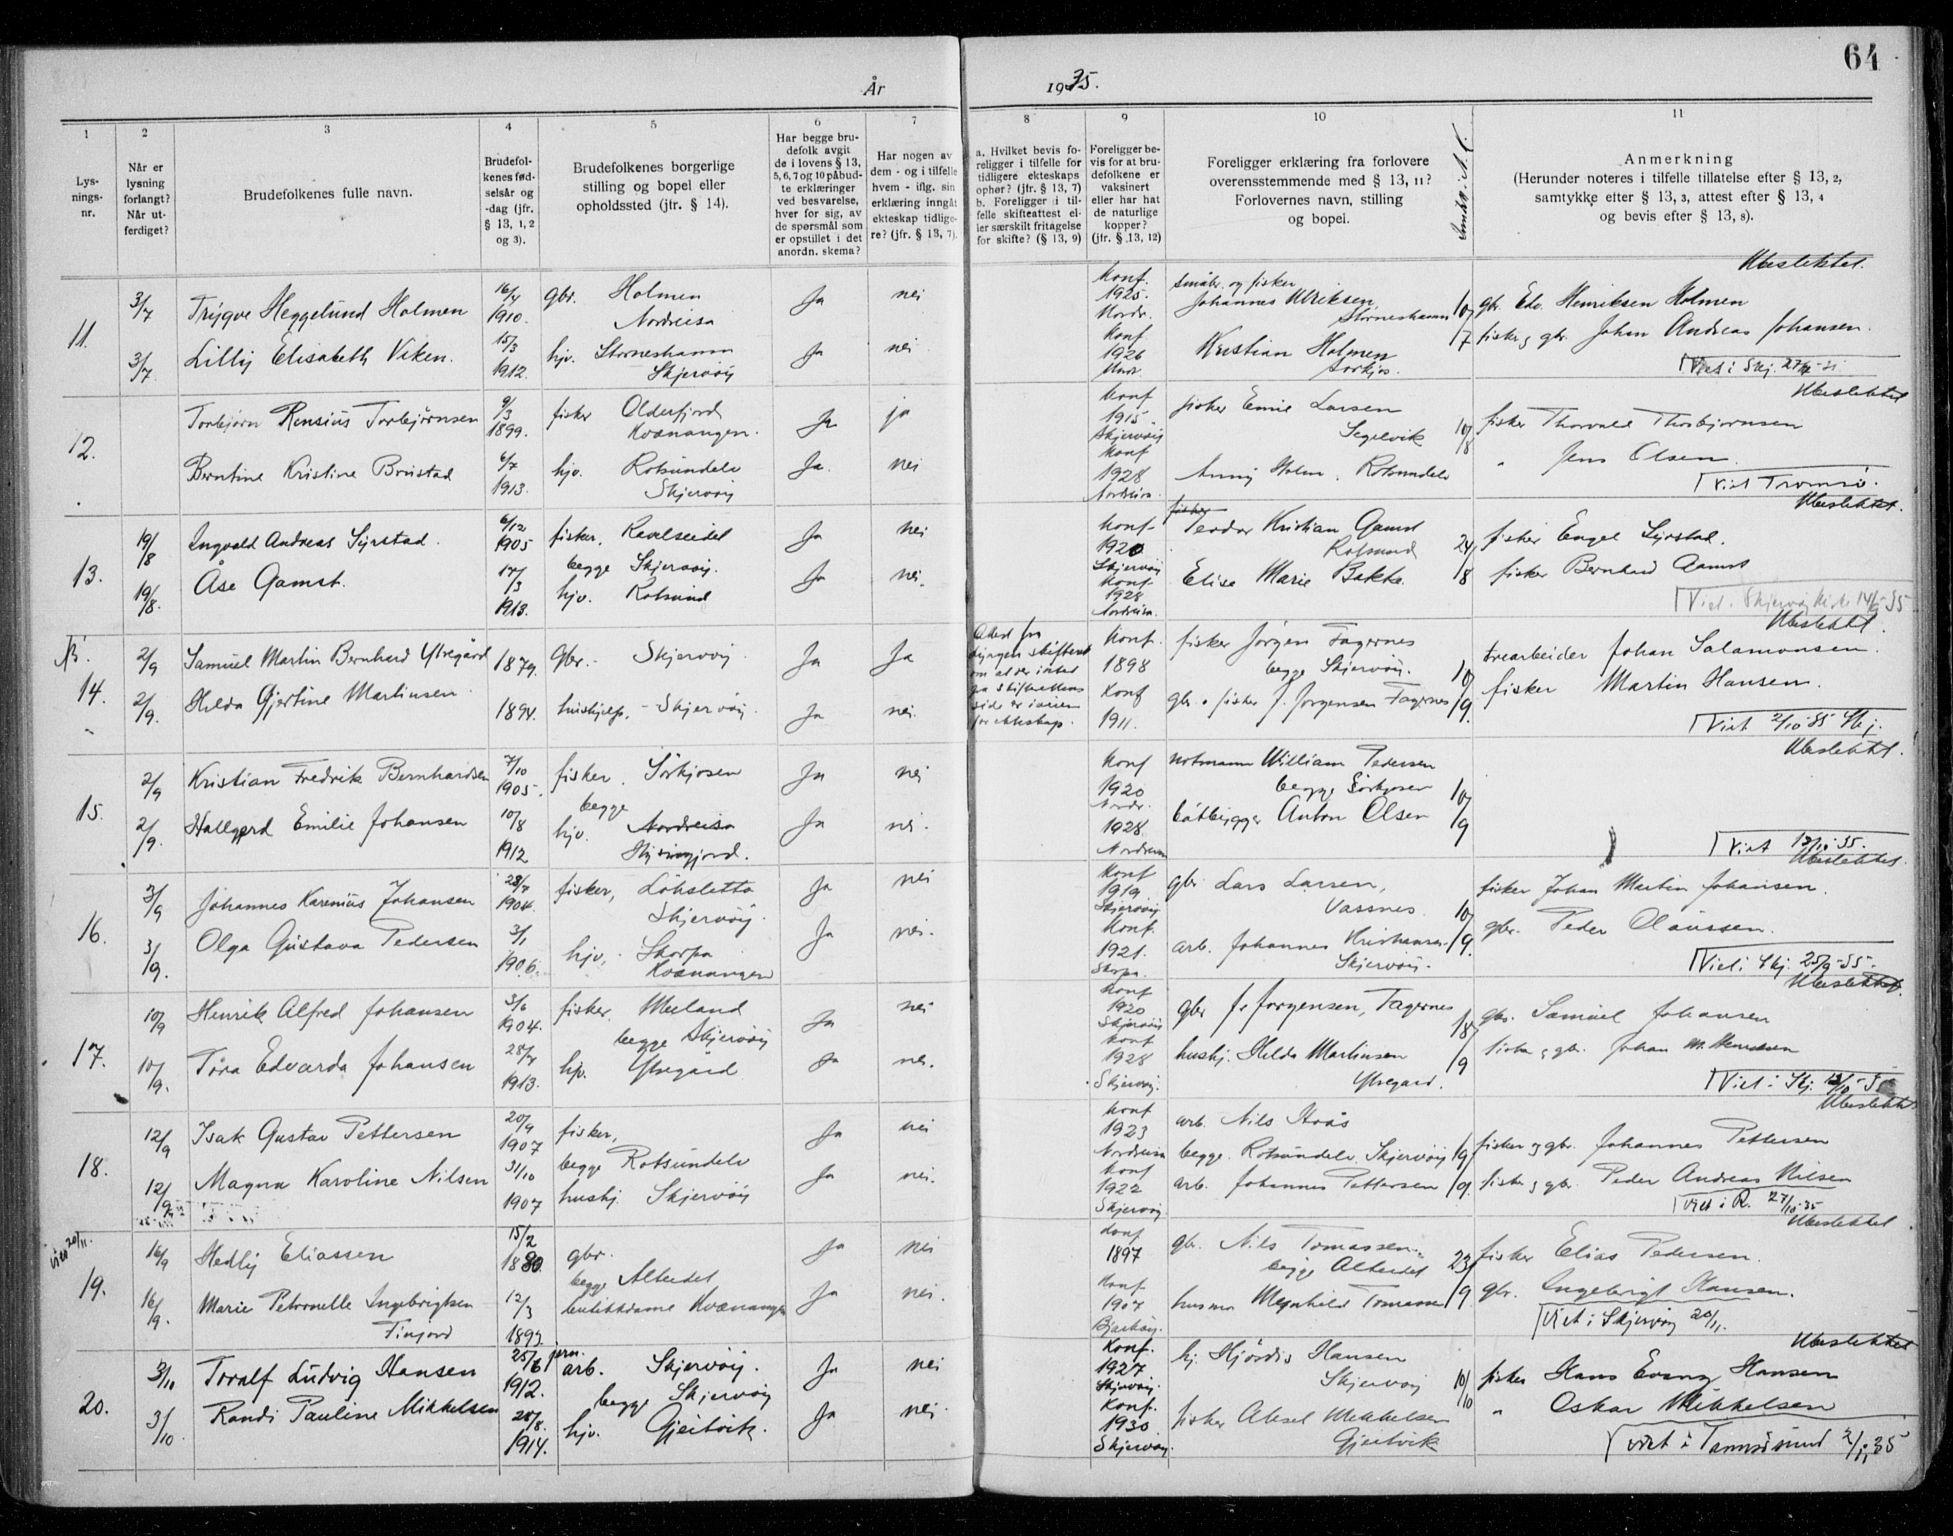 64
År 1935.
1 2 3 4 5 6 7 8 9 10 11
Lys-
nings-
nr.
Når er
lysning
forlangt?
Når ut-
ferdiget?
Brudefolkenes fulle navn.
Brudefol-
kenes fød-
selsår og
-dag (jfr.
§ 13, 1, 2
og 3).
Brudefolkenes borgerlige
stilling og bopel eller
opholdssted (jfr. § 14).
Har begge bru-
defolk avgit
de i lovens § 13,
5, 6, 7 og 10 påbud-
te erklæringer
ved besvarelse,
hver for sig, av
de spørsmål som
er opstillet i det
anordn. skema?
Har nogen av
dem - og i tilfelle
hvem - iflg. sin
erklæring inngåt
ekteskap tidlige-
re? (jfr. § 13, 7).
a. Hvilket bevis fo-
religger i tilfelle for
tidligere ekteskaps
ophør? (jfr. § 13, 7)
b. Foreligger i til-
felle skifteattest el-
ler særskilt fritagelse
for skifte? (§ 13, 9)
Foreligger be-
vis for at bru-
defolkene er
vaksinert
eller har hat
de naturlige
kopper?
(jfr. § 13, 12)
Foreligger erklæring fra forlovere
overensstemmende med § 13, 11?
Forlovernes navn, stilling
og bopel.
Anmerkning
(Herunder noteres i tilfelle tillatelse efter § 13, 2,
samtykke efter § 13, 3, attest efter § 13, 4
og bevis efter § 13, 8).
11.
3/7 Trygve Heggelund Holmen 16/4 1910. gbr. Holmen Nordreisa Ja nei
Konf. 1925. Nordr. småbr. og fisker Johannes Ulriksen Storneshamn 10/7 gbr. Edv. Henriksen Holmen
Ubeslektet.
3/7 Lilly Elisabeth Viken. 15/3 1912. hjv. Storneshamn Skjervøy Ja nei
Konf 1926 Kristian Holmen Sørkjos. fisker og gbr. Johan Andreas Johansen.
12.
Torbjørn Rensius Torbjørnsen 9/3 1899. fisker Olderfjord Kvænangen. Ja ja
Konf 1915. Skjervøy fisker Emil Larsen Segelvik 10/8 fisker Thorvald Thorbjørnsen
Ubeslektet
Berntine Kristine Brustad 6/7 1913. hjv. Rotsundelv Skjervøy Ja. nei
Konf 1928 Nordreisa. Anny Holm, Rotsundelv " Jens Olsen
Viet Tromsø.
13.
19/8 Ingvald Andreas Syrstad. 6/12 1905 fisker, Ravelseidet Ja nei
begge Skjervøy.
Konf 1920 Skjervøy Teodor Kristian Gamst Rotsund 24/8 fisker Engel Syrstad.
Ubeslektet.
19/8. Åse Gamst. 17/3 1913. hjv. Rotsund Ja nei.
Konf. 1928 Nordreisa. Elise Marie Bakke fisker Bernhard Gamst
14.
2/9 Samuel Martin Bernhard Ytregård 1879. Gbr. - Skjervøy Ja Ja
Konf. 1898 fisker Jørgen Fagernes begge Skjervøy. 10/9. trearbeider Johan Salamonsen.
Ubeslektet.
2/9. Hilda Gjertine Martinsen 1894. hushjelp, - Skjervøy Ja nei.
Konf 1911. gbr. o fisker J. Jørgensen Fagernes fisker Martin Hansen.
Viet 2/10-35 Skj.
15.
2/9 Kristian Fredrik Bernhardsen 7/10 1905. fisker. Sørkjosen Ja nei
begge
Konf 1920 Nordr. notmann William Pedersen begge Sørkjosen 10/9
Ubeslektet.
2/9. Hallgerd Emilie Johansen 10/8 1912 hjv. Nordreisa Ja nei.
1928 Nordreisa båtbygger Anton Olsen
16.
3/9 Johannes Karenius Johansen 28/7 1904. fisker, Løksletta Skjervøy. Ja nei
Konf 1919 Skjervøy gbr Lars Larsen, Vassnes 10/9. fisker Johan Martin Johansen.
Ubeslektet.
3/9. Olga Gustava Pedersen 3/1 1906. hjv. Skorpa Kvænangen Ja nei.
Konf. 1921. Skorpa. arb. Johannes Kristiansen Skjervøy. gbr. Peder Claussen.
Viet i Skj. 25/9-35.
17.
10/9 Henrik Alfred Johansen 3/6 1904. fisker, Meiland Ja nei
begge Skjervøy
Konf 1920 Skjervøy gbr J. Jørgensen, Fagernes 18/9 gbr. Samuel Johansen
Ubeslektet.
10/9. Tøra Edvarda Johansen 1913. Ytregård Ja nei.
Konf 1928 Skjervøy. hushj. Hilda Martinsen Ytregård. fisker og gbr. Johan
Viet i Skj.
18.
12/9 Isak Gustav Pettersen 20/9 1907 fisker, Ja nei
begge Rotsundelv
Konf 1923 Nordreisa arb. Nils begge Rotsundelv. Skjervøy 19/9. fisker og gbr. Johannes Pettersen
Ubeslektet
12/9 Magna Karoline Nilsen 31/10 1907 hushj Skjervøy Ja nei.
Konf 1922 Skjervøy arb. Johannes Pettersen fisker og gbr. Peder Andreas Nilsen
Viet i R. 27/10-35
19.
16/9 Hedly Eliassen 15/2 1880. gbr. Ja nei
begge Alteidet
Konf 1897 gbr. Nils Tomassen begge Alteidet 23/9 fisker Elias Pedersen.
Ubeslektet
16/9. Marie Petronelle Ingebrigtsen 12/3 butikkdame Kvænangen Ja nei.
Konf 1907 Bjarkøy. Meyhild Tomassen gbr. Ingebrigt Hansen.
Viet i Skjervøy 20/11.
20.
3/10 Toralf Ludvig Hansen 25/6 1912. arb. Skjervøy. Ja nei
begge Skjervøy
Konf. 1927 Skjervøy. hj. Hjørdis Hansen Skjervøy 10/10 fisker Hans Evang Hansen
Ubeslektet
3/10 Randi Pauline Mikkelsen 28/8. 1914. hjv. Gjeitvik. Ja nei
Konf. 1930 Skjervøy. fisker Aksel Mikkelsen Gjeitvik " Oskar Mikkelsen